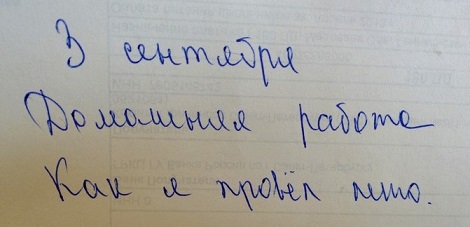 3 сентября
Домашняя работа
Как я провёл лето.